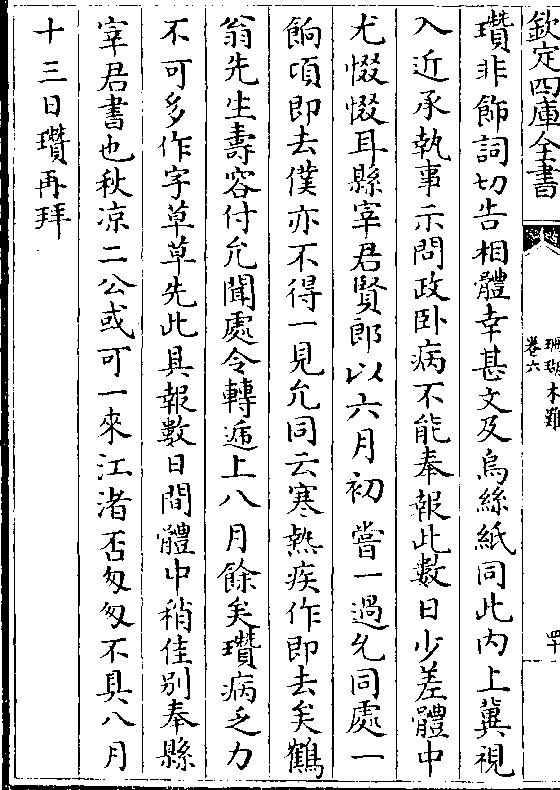 欽定四庫全書
珊瑚木難
卷六
四十
瓚非飾詞切告相體幸甚文及烏絲紙同此内上冀視
入近承執事示問政卧病不能奉報此數日少差體中
尤惙惙耳縣宰君賢郎以六月初嘗一過允同處一
餉項即去僕亦不得一見允同云寒熱疾作即去矣鶴
翁先生壽容付允聞處令轉逓上八月餘矣瓚病乏力
不可多作字草草先此具報數日間體中稍佳别奉縣
宰君書也秋凉二公或可一來江渚否匆匆不具八月
十三日瓚再拜